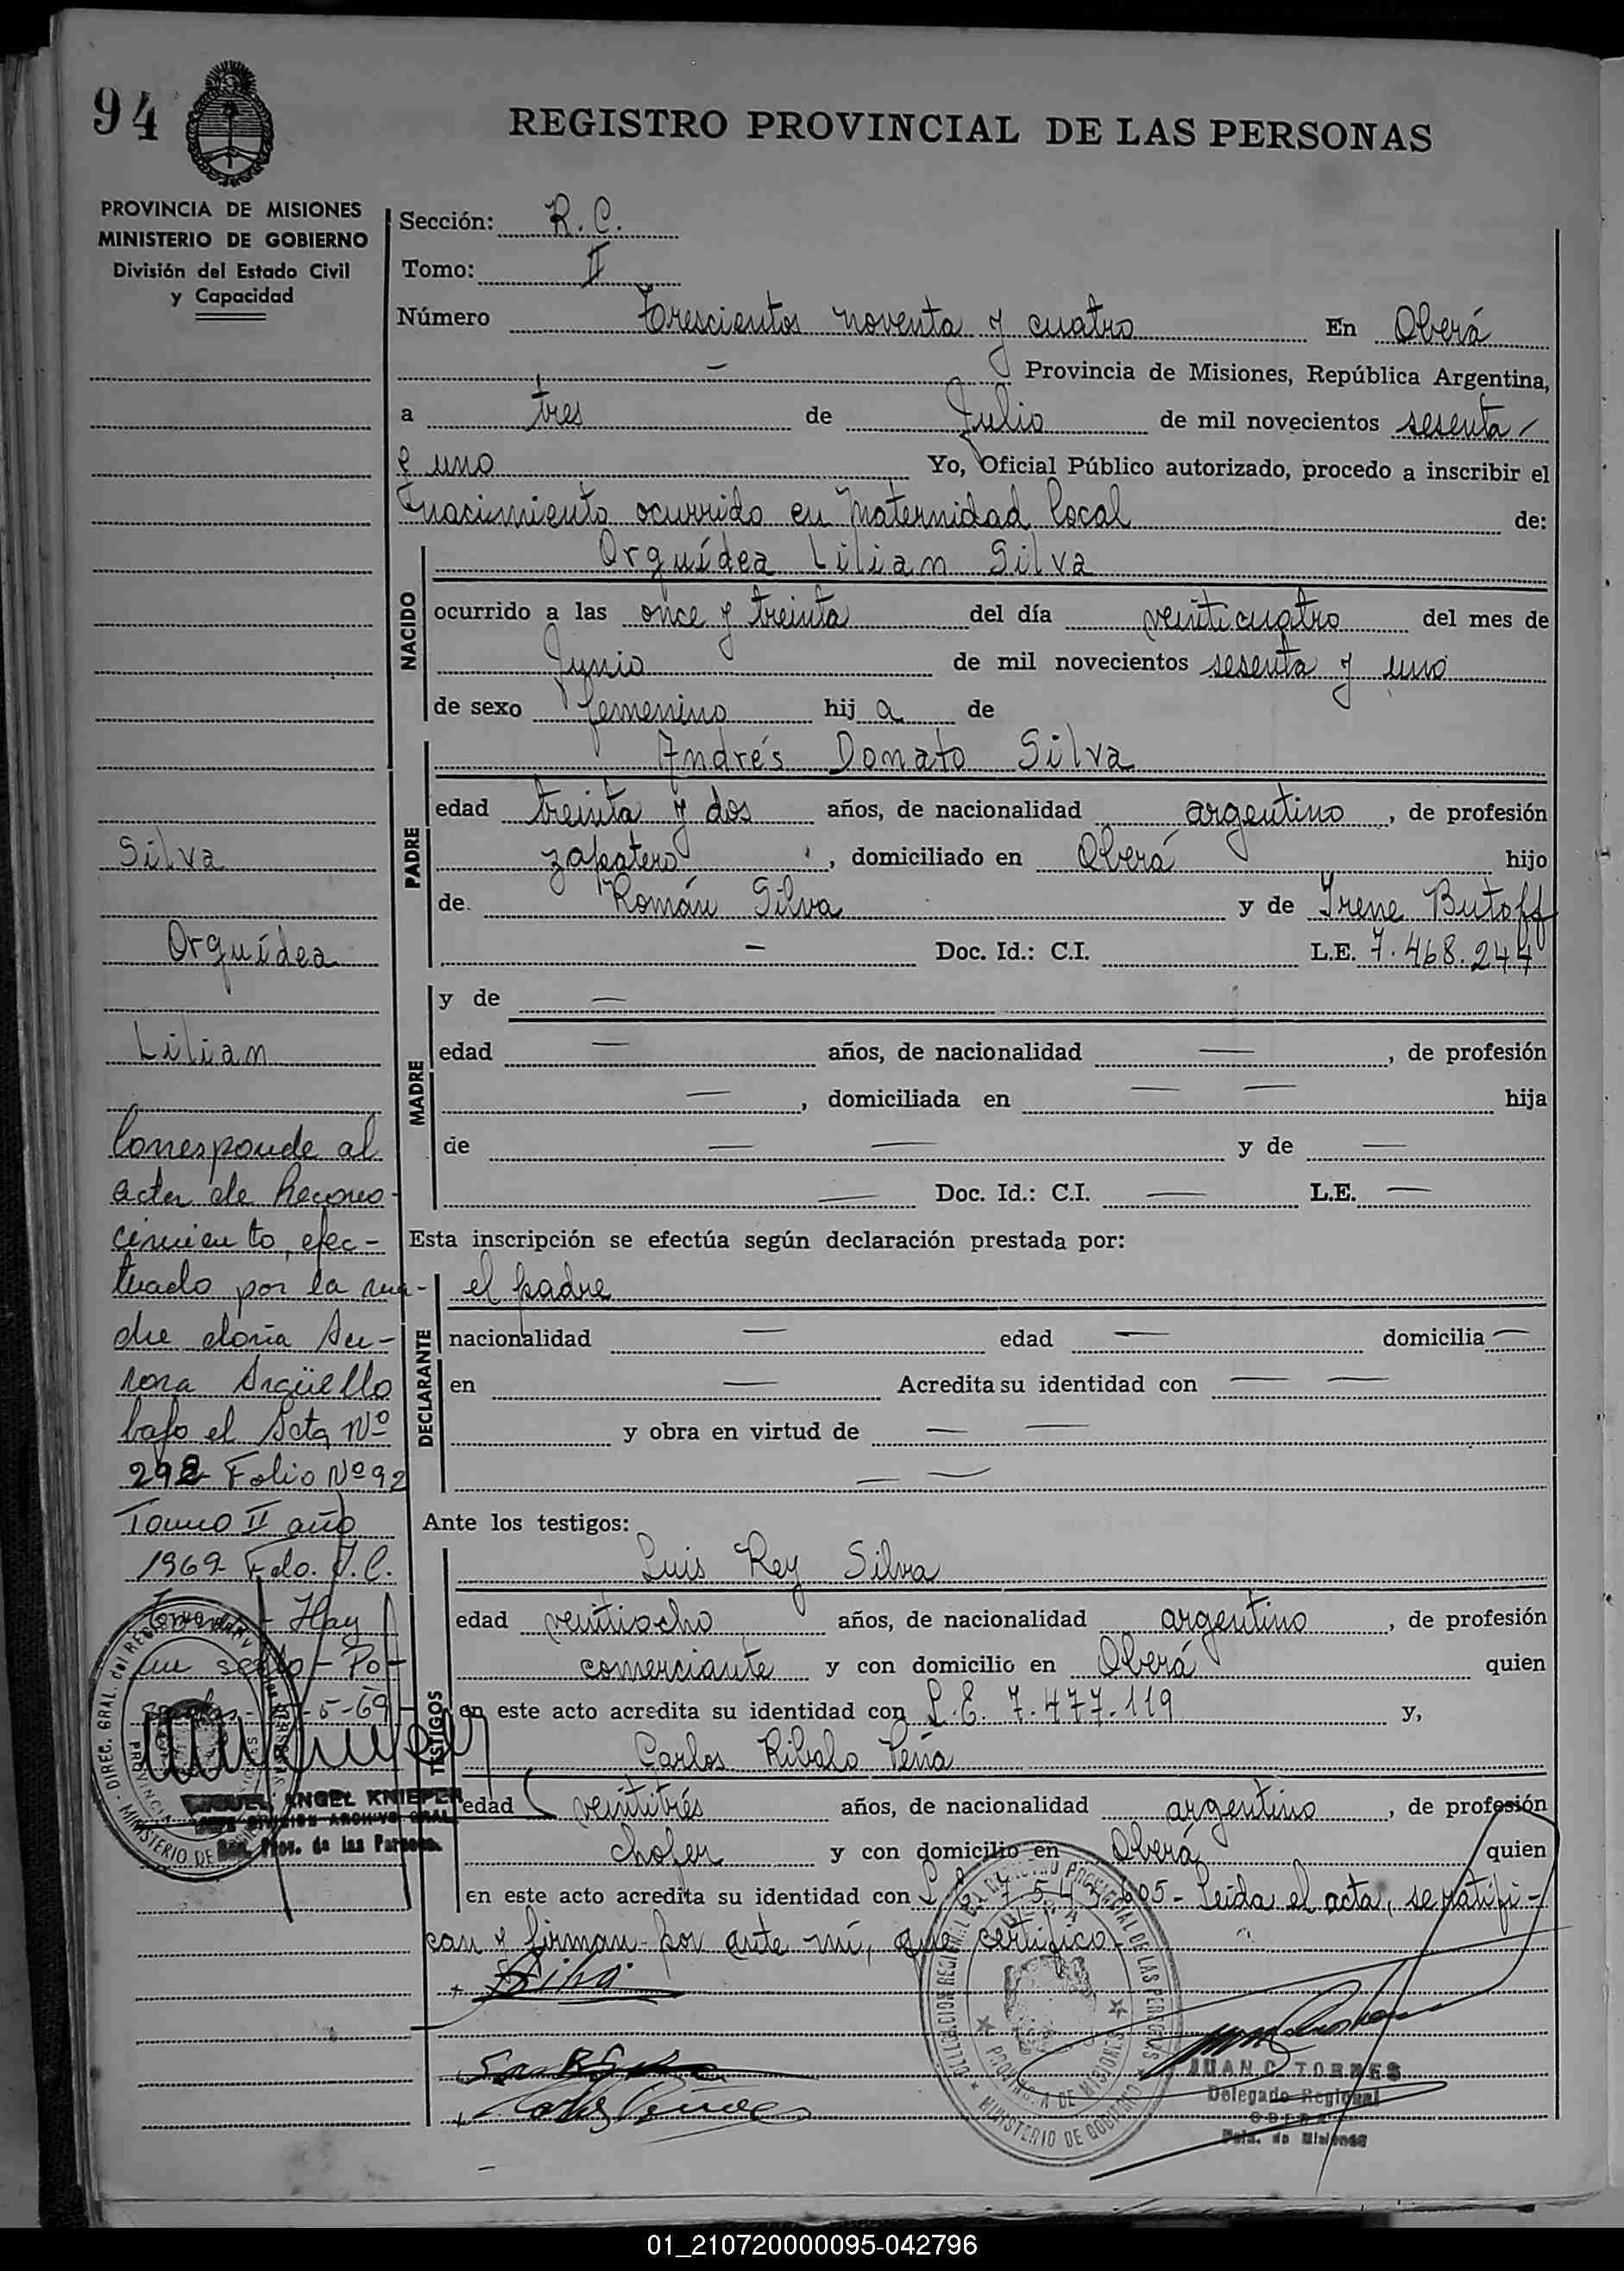 94
REGISTRO PROVINCIAL DE LAS PERSONAS
PROVINCIA DE MISIONES
MINISTERIO DE GOBIERNO
División del Estado Civil
y Capacidad
Sección: R. C.
Tomo: II
Número Trescientos noventa y cuatro En Oberá
— Provincia de Misiones, República Argentina,
a tres de Julio de mil novecientos sesenta
y uno Yo, Oficial Público autorizado, procedo a inscribir el
nacimiento ocurrido en Maternidad local de:
NACIDO
Orquídea Lilian Silva
ocurrido a las once y treinta del día veinticuatro del mes de
Junio de mil novecientos sesenta y uno
de sexo femenino hij a de
PADRE
Andrés Donato Silva
edad treinta y dos años, de nacionalidad argentino, de profesión
zapatero, domiciliado en Oberá hijo
de Román Silva y de Irene Butoff
— Doc. Id.: C.I. L.E. 7.468.244
MADRE
y de —
edad — años, de nacionalidad —, de profesión
—, domiciliada en — — hija
de — — y de —
— Doc. Id.: C.I. — L.E. —
Esta inscripción se efectúa según declaración prestada por:
DECLARANTE
el padre
nacionalidad — edad — domicilia —
en — Acredita su identidad con — —
y obra en virtud de — —
— —
Ante los testigos:
TESTIGOS
Luis Rey Silva
edad veintiocho años, de nacionalidad argentino, de profesión
comerciante y con domicilio en Oberá quien
en este acto acredita su identidad con L.E. 7.477.119 y,
Carlos Peña
edad veintitrés años, de nacionalidad argentino, de profesión
chofer y con domicilio en Oberá quien
en este acto acredita su identidad con L.E. 605 - Leída el acta, se ratifi-
can y firman por ante mí, que certifico -
Silva
JUAN C. TORRES
Delegado Regional
OBERA
Pcia. de Misiones
Silva
Orquídea
Lilian
Corresponde al
acta de Recono-
cimiento, efec-
tuado por la ma-
dre doña Au-
rora Argüello
bajo el Acta Nº
292 Folio Nº 92
Tomo II año
1969 Fdo. J.C.
Torres - Hay
un sello - Po-
sadas - -5-69
MIGUEL ANGEL KNIEPER
JEFE DIVISION ARCHIVO GRAL.
Reg. Prov. de las Personas
01_210720000095-042796